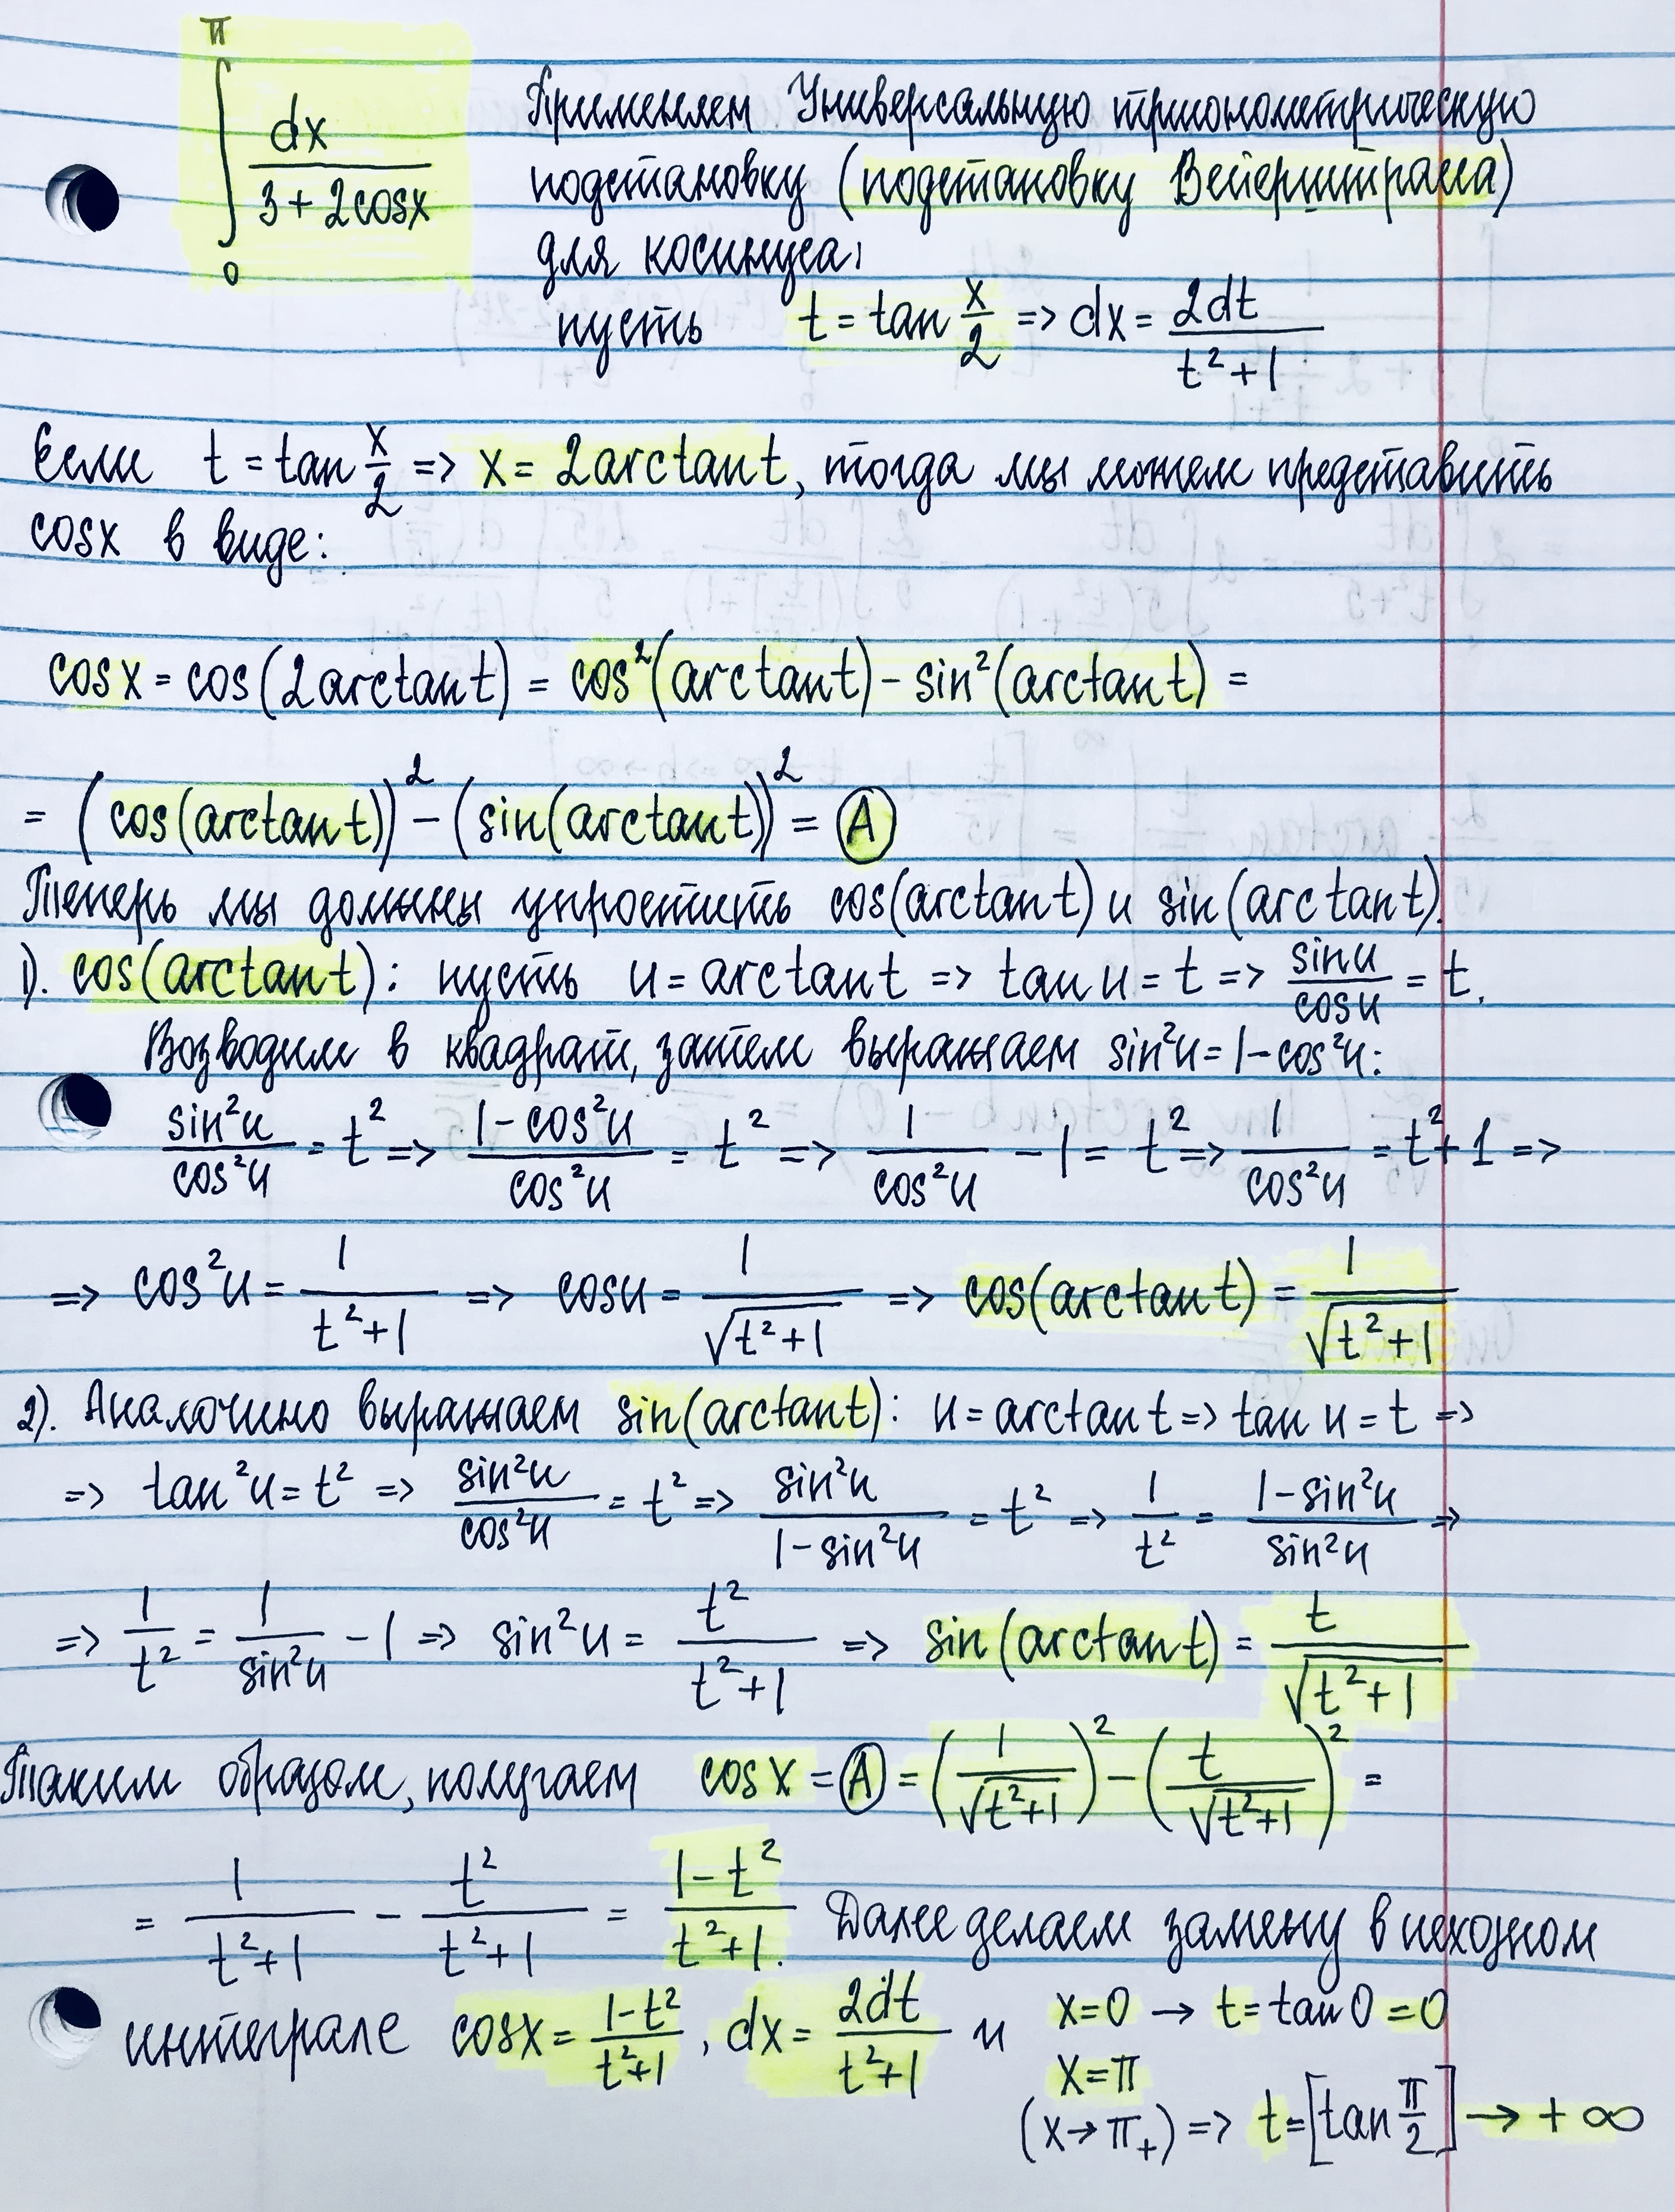 ∫₀^π dx/(3+2cosx) Применяем Универсальную тригонометрическую
подстановку (подстановку Вейерштрасса)
для косинуса:
пусть t = tan x/2 => dx = 2dt/(t²+1)
Если t = tan x/2 => x = 2arctan t, тогда мы можем представить
cosx в виде:
cosx = cos(2arctan t) = cos²(arctan t) - sin²(arctan t) =
= (cos(arctan t))² - (sin(arctan t))² = Ⓐ
Теперь мы должны упростить cos(arctan t) и sin(arctan t).
1). cos(arctan t): пусть u = arctan t => tan u = t => sinu/cosu = t.
Возводим в квадрат, затем выражаем sin²u = 1-cos²u:
sin²u/cos²u = t² => (1-cos²u)/cos²u = t² => 1/cos²u - 1 = t² => 1/cos²u = t²+1 =>
=> cos²u = 1/(t²+1) => cosu = 1/√(t²+1) => cos(arctan t) = 1/√(t²+1)
2). Аналогично выражаем sin(arctan t): u = arctan t => tan u = t =>
=> tan²u = t² => sin²u/cos²u = t² => sin²u/(1-sin²u) = t² => 1/t² = (1-sin²u)/sin²u =>
=> 1/t² = 1/sin²u - 1 => sin²u = t²/(t²+1) => sin(arctan t) = t/√(t²+1)
Таким образом, получаем cosx = Ⓐ = (1/√(t²+1))² - (t/√(t²+1))² =
= 1/(t²+1) - t²/(t²+1) = (1-t²)/(t²+1). Далее делаем замену в исходном
интеграле cosx = (1-t²)/(t²+1), dx = 2dt/(t²+1) и x=0 → t = tan0 = 0
x=π
(x→π₊) => t = [tan π/2] → +∞